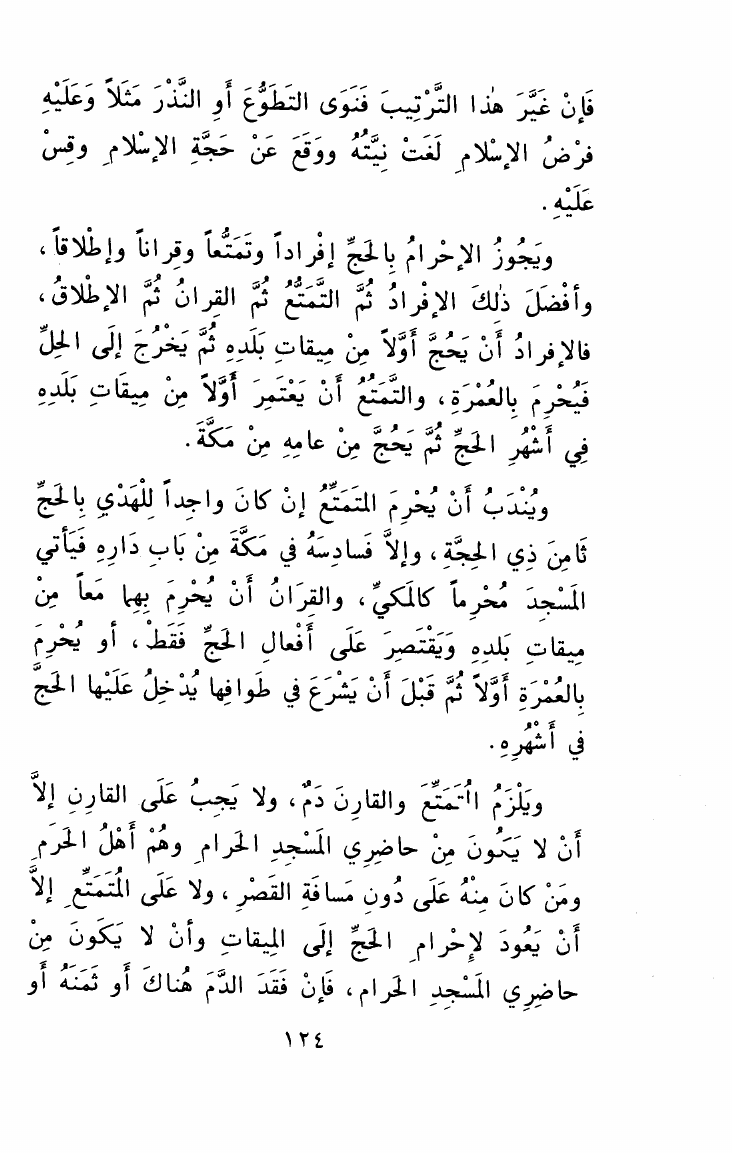 فَإِنْ غَيَّرَ هٰذا التَّرْتِيبَ فَنَوَى التَطَوُّعَ أَوِ النَّذْرَ مَثَلاً وَعَلَيْهِ
فرْضُ الإسْلامِ لَغَتْ نِيَّتُهُ ووَقَعَ عَنْ حَجَّةِ الإسْلامِ وقِسْ
عَلَيْهِ .
ويَجُوزُ الإحْرامُ بِالحَجِّ إفْراداً وتَمَتُّعاً وقِراناً وإطْلاقاً ،
وأفْضَلَ ذٰلِكَ الإفْرادُ ثُمَّ التَّمَتُّعُ ثُمَّ القِرانُ ثُمَّ الإطْلاقُ ،
فالإفرادُ أَنْ يَحُجَّ أَوَّلاً مِنْ مِيقاتِ بَلَدِهِ ثُمَّ يَخْرُجَ إلَى الحِلِّ
فَيُحْرِمَ بِالعُمْرَةِ ، والتَّمَتُعُ أَنْ يَعْتَمِرَ أَوَّلاً مِنْ مِيقَاتِ بَلَدِهِ
فِي أَشْهُرِ الحَجِّ ثُمَّ يَحُجَّ مِنْ عامِهِ مِنْ مَكَّةَ .
ويُنْدَبُ أَنْ يُحْرِمَ المتَمَتِّعُ إنْ كانَ واجِداً لِلْهَدْيِ بِالحَجِّ
ثَامِنَ ذِي الحِجَّةِ ، وإلاَّ فَسادِسَهُ في مَكَّةَ مِنْ بَابِ دَارِهِ فَيَأتي
المَسْجِدَ مُحْرِماً كالمَكيِّ ، والقِرَانُ أَنْ يُحْرِمَ بِهِما مَعاً مِنْ
مِيقاتِ بَلدِهِ وَيَقْتَصِرَ عَلَى أَفْعالِ الحَجِّ فَقَطْ ، أو يُحْرِمَ
بِالعُمْرَةِ أَوَّلاً ثُمَّ قَبْلَ أَنْ يَشْرَعَ في طَوافِها يُدْخِلُ عَلَيْها الحَجَّ
في أَشْهُرِهِ .
ويَلْزَمُ المُتَمَتِّعَ والقارِنَ دَمٌ ، ولا يَجِبُ عَلَى القارِنِ إلاَّ
أَنْ لا يَكُونَ مِنْ حاضِرِي المَسْجِدِ الحَرامِ وهُمْ أَهْلُ الحَرَمِ
ومَنْ كانَ مِنْهُ عَلَى دُونِ مَسافَةِ القَصْرِ ، ولا عَلَى المُتَمَتِّعِ إلاَّ
أَنْ يَعُودَ لإِحْرامِ الحَجِّ إلَى المِيقاتِ وأنْ لا يَكونَ مِنْ
حاضِرِي المَسْجِدِ الحَرامِ ، فَإنْ فَقَدَ الدَّمَ هُناكَ أو ثَمَنَهُ أو
١٢٤